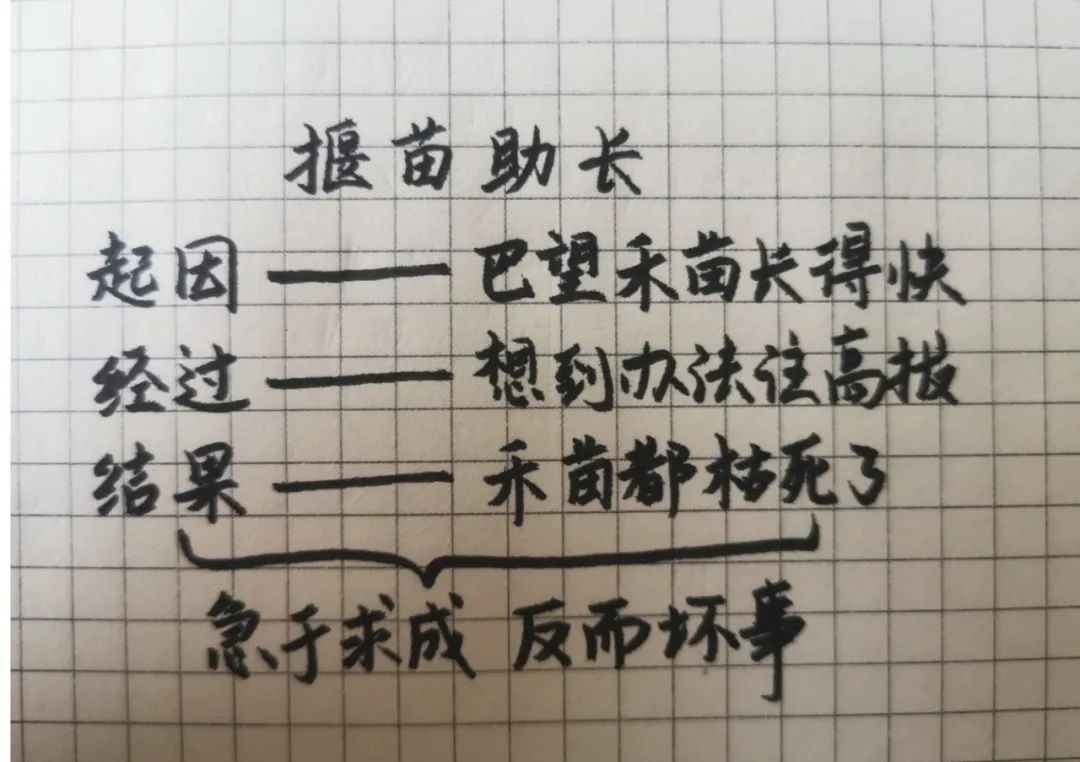 揠苗助长
起因——巴望禾苗长得快
经过——想到办法往高拔
结果——禾苗都枯死了
急于求成 反而坏事